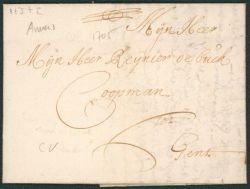 Anvers
1705
Mijn Heer
Mijn Heer Reynier de
Coopman
6
Gent
CV